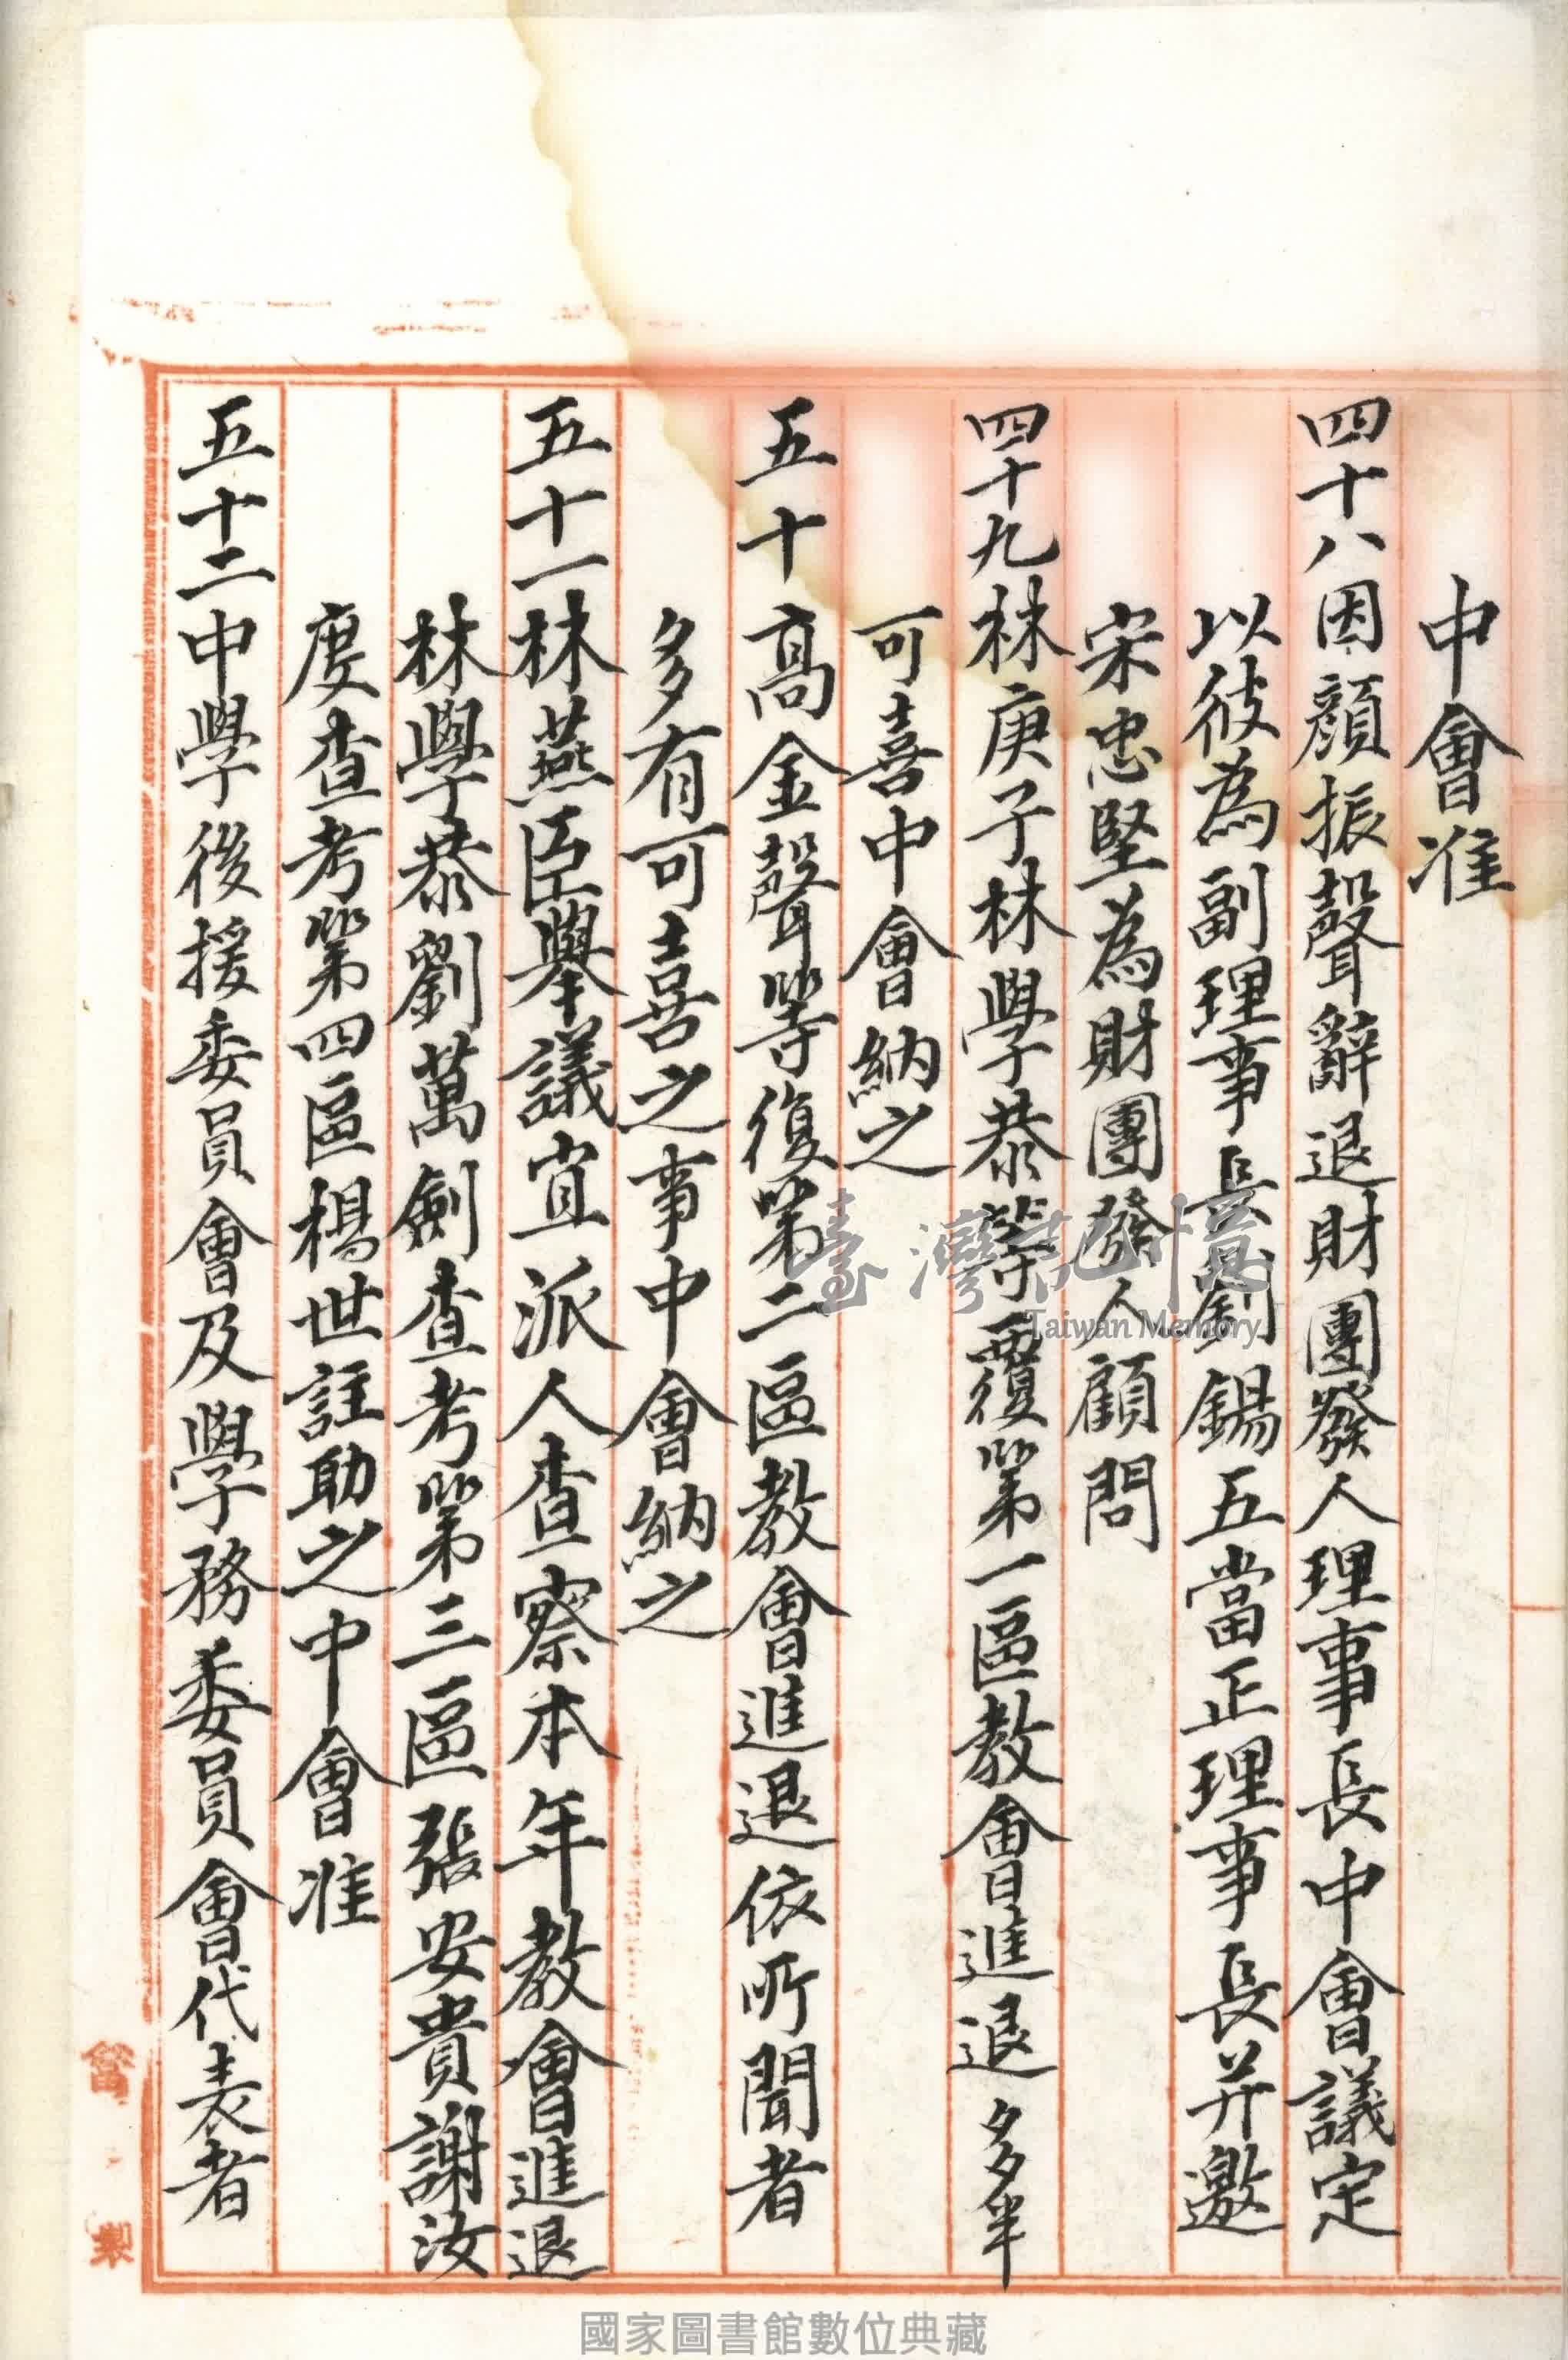 中會准
四十八因顏振聲辭退財團發人理事長中會議定
以彼為副理事長劉錫五當正理事長并邀
宋忠堅為財團發人顧問
四十九林庚子林學恭等覆第一區教會進退多半
可喜中會納之
五十高金聲等復第二區教會進退依所聞者
多有可喜之事中會納之
五十一林燕臣舉議宜派人查察本年教會進退
林學恭劉萬劍查考第三區張安貴謝汝
度查考第四區楊世註助之中會准
五十二中學後援委員會及學務委員會代表者
臺灣記憶
Taiwan Memory
國家圖書館數位典藏